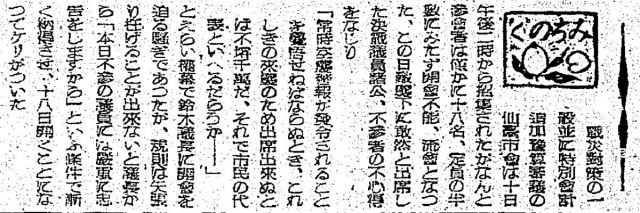 みちのく
戰災対策の一
般並に特別會計
追加豫算審議の
仙臺市會は十日
午後二時から招集されたがなんと
參會者は僅かに十八名、定員の半
数にみたず開會不能、流會となつ
た、この日敵襲下に敢然と出席し
た決戰議員諸公、不參者の不心得
をなじり
「常時空襲警報が發令されること
を覺悟せねばならぬとき、これ
しきの來襲のため出席出來ぬと
は不埒千萬だ、それで市民の代
表といへるだらうか――」
とえらい権幕で鈴木議長に開會を
迫る騒ぎであつたが、規則は矢張
り枉げることが出來ないと議長か
ら「本日不參の議員には嚴重に忠
告をしますから」といふ條件で漸
く納得させ、十八日開くことにな
つてケリがついた